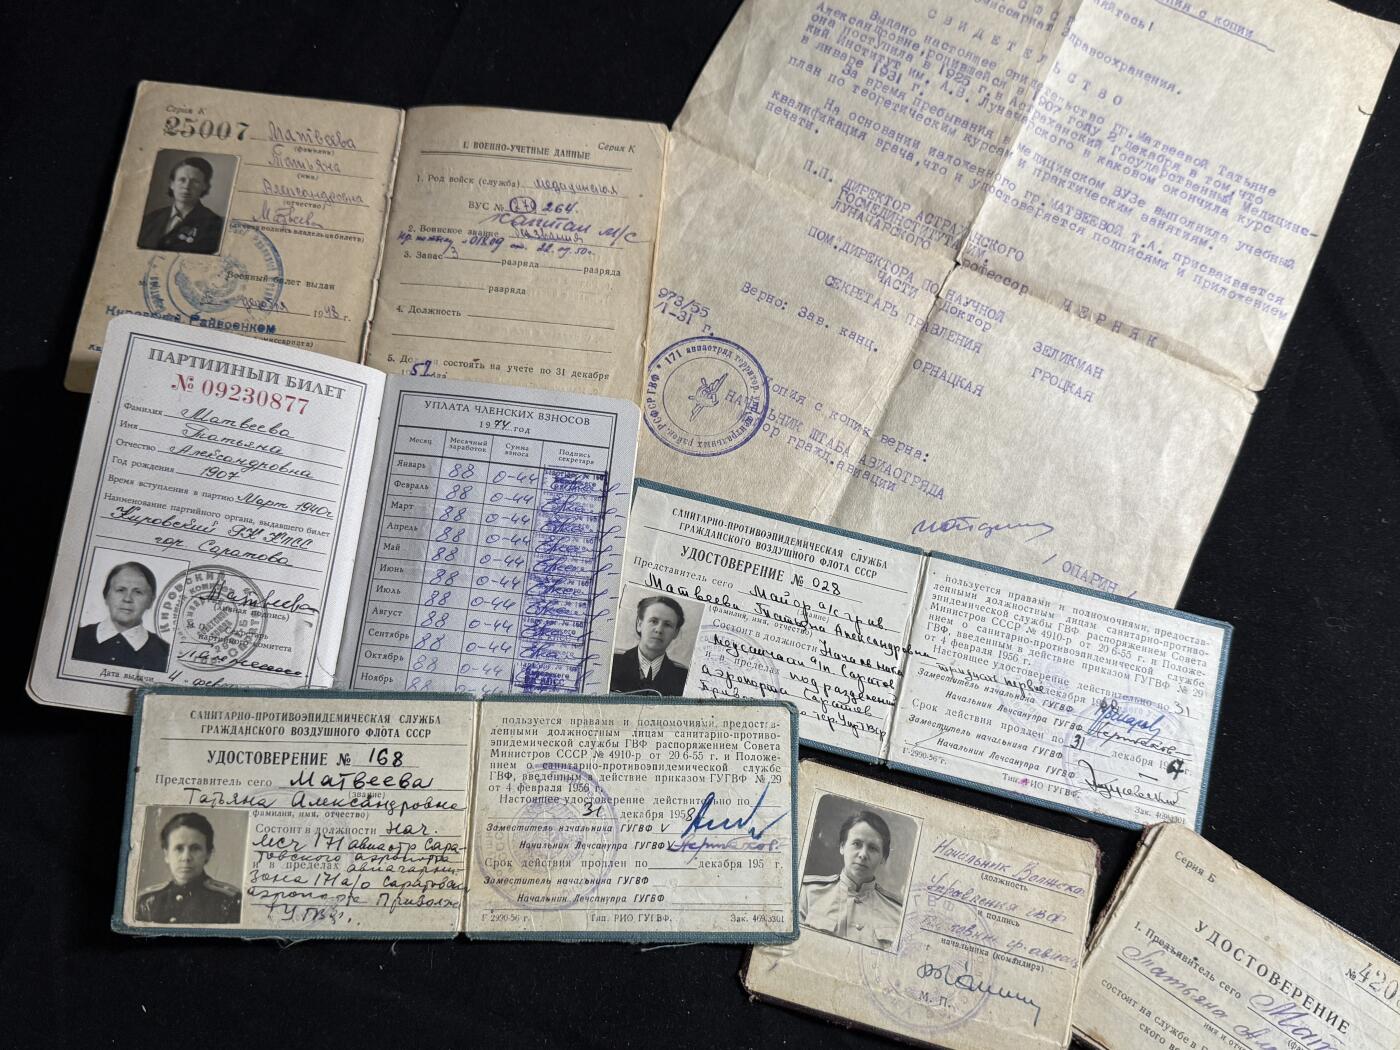 Серия К
25007
Матвеева
(фамилия)
Татьяна
(имя)
Александровна
(отчество)
Матвеева
Военный билет выдан
декабря 1948 г.
Кировский Райвоенком
Серия К
I. ВОЕННО-УЧЕТНЫЕ ДАННЫЕ
1. Род войск (служба) медицинская
ВУС № 264.
капитан м/с
2. Воинское звание
3. Запас 3 разряда разряда
разряда
4. Должность
5. состоять на учете по 31 декабря
копии с копии
Здравоохранения.
СВИДЕТЕЛЬСТВО
Выдано настоящее свидетельство гр. Матвеевой Татьяне
Александровне, родившейся в 1907 году 2 декабря в том, что
она поступила в 1925 г. в Астраханский Государственный Медицинс-
кий Институт им. А.В. Луначарского в каковом окончила курс
в январе 1931 г.
За время пребывания в Медицинском ВУЗе выполнила учебный
план по теоретическим курсам и практическим занятиям.
На основании изложенного гр. МАТВЕЕВОЙ Т.А. присваивается
квалификация врача, что и удостоверяется подписями и приложением
печати.
П.П. ДИРЕКТОР АСТРАХАНСКОГО
ГОСМЕДИНСТИТУТА ИМ.
ЛУНАЧАРСКОГО профессор ЧЕРНЯК
ПОМ. ДИРЕКТОРА ПО НАУЧНОЙ
ЧАСТИ Доктор ЗЕЛИКМАН
СЕКРЕТАРЬ ПРАВЛЕНИЯ ГРОЦКАЯ
Верно: Зав. канц. ОРНАЦКАЯ
973/55
/I-31 г.
Копия с копии верна:
НАЧАЛЬНИК ШТАБА АВИАОТРЯДА
майор гражд. авиации
/ ОПАРИН /
171 авиаотряд
ПАРТИЙНЫЙ БИЛЕТ
№ 09230877
Фамилия Матвеева
Имя Татьяна
Отчество Александровна
Год рождения 1907
Время вступления в партию Март 1940г.
Наименование партийного органа, выдавшего билет
Кировский РК КПСС
гор. Саратова
Матвеева
(личная подпись)
Секретарь
партийного комитета
Дата выдачи 4 фев
УПЛАТА ЧЛЕНСКИХ ВЗНОСОВ
1974 год
Месяц Месячный заработок Сумма взноса Подпись секретаря
Январь 88 0-44
Февраль 88 0-44
Март 88 0-44
Апрель 88 0-44
Май 88 0-44
Июнь 88 0-44
Июль 88 0-44
Август 88 0-44
Сентябрь 88 0-44
Октябрь 88 0-44
Ноябрь 88 0-44
САНИТАРНО-ПРОТИВОЭПИДЕМИЧЕСКАЯ СЛУЖБА
ГРАЖДАНСКОГО ВОЗДУШНОГО ФЛОТА СССР
УДОСТОВЕРЕНИЕ № 028
Представитель сего Майор
(звание)
Матвеева Татьяна Александровна
(фамилия, имя, отчество)
Состоит в должности Начальника
медсанчасти а/п Саратов
и в пределах подразделений
аэропорта Саратов
пользуется правами и полномочиями, предостав-
ленными должностным лицам санитарно-проти-
эпидемической службы ГВФ распоряжением Совета
Министров СССР № 4910-р от 20 6-55 г. и Положе-
нием о санитарно-противоэпидемической службе
ГВФ, введенным в действие приказом ГУГВФ № 29
от 4 февраля 1956 г.
Настоящее удостоверение действительно по 31
декабря
Заместитель начальника ГУГВФ
Начальник Лечсанупра ГУГВФ
Срок действия продлен по 31 декабря
Заместитель начальника ГУГВФ
Начальник Лечсанупра ГУГВФ
Г-2990-56 г. Тип. РИО ГУГВФ.
САНИТАРНО-ПРОТИВОЭПИДЕМИЧЕСКАЯ СЛУЖБА
ГРАЖДАНСКОГО ВОЗДУШНОГО ФЛОТА СССР
УДОСТОВЕРЕНИЕ № 168
Представитель сего Матвеева
(звание)
Татьяна Александровна
(фамилия, имя, отчество)
Состоит в должности нач.
МСЧ 171 авиаотр Сара-
товского аэропорта
и в пределах авиагарни-
зона 171 а/о Саратовск
аэропорта Приволж
ТУГВФ.
пользуется правами и полномочиями, предостав-
ленными должностным лицам санитарно-противо-
эпидемической службы ГВФ распоряжением Совета
Министров СССР № 4910-р от 20 6-55 г. и Положе-
нием о санитарно-противоэпидемической службе
ГВФ, введенным в действие приказом ГУГВФ № 29
от 4 февраля 1956 г.
Настоящее удостоверение действительно по
31 декабря 1958
Заместитель начальника ГУГВФ
Начальник Лечсанупра ГУГВФ
Срок действия продлен по декабря 195 г.
Заместитель начальника ГУГВФ
Начальник Лечсанупра ГУГВФ
Г 2990-56 г. Тип. РИО ГУГВФ. Зак.
Начальник
(должность
Управления ГВФ
и подпись
начальника (командира)
М. П.
Серия Б
УДОСТОВЕРЕНИЕ
№ 420
1. Предъявитель сего
Татьяна
имя и отче
состоит на службе в